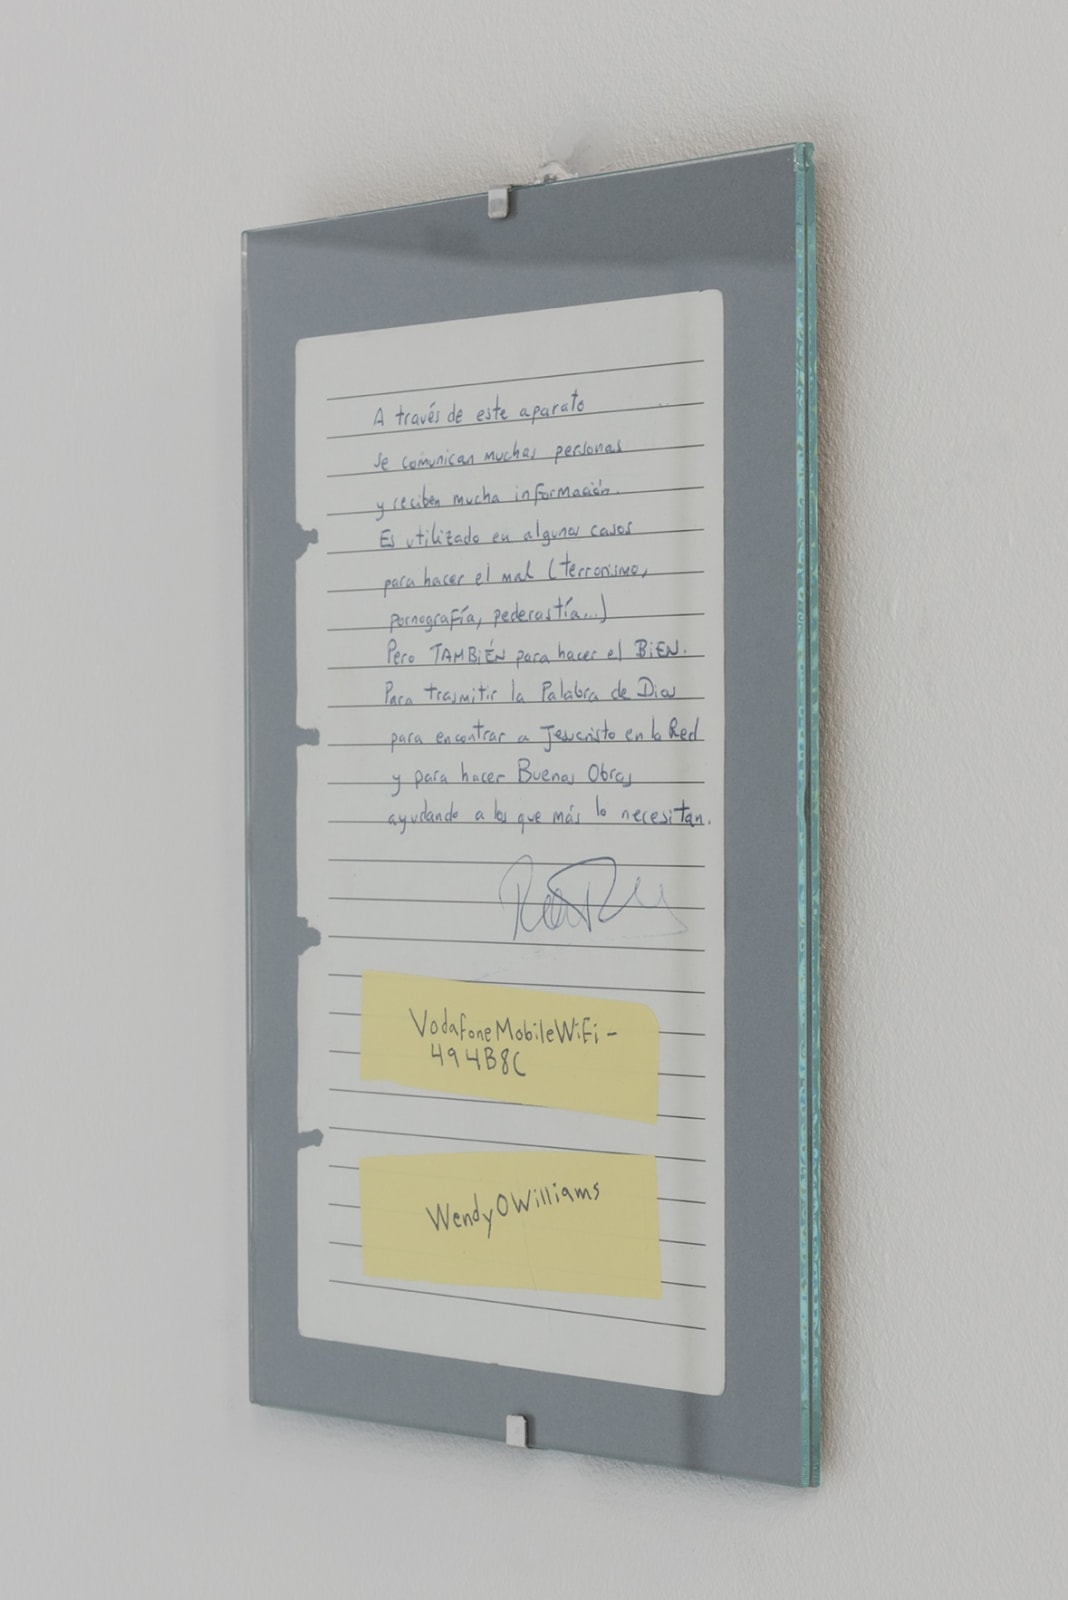 A través de este aparato
se comunican muchas personas
y reciben mucha información.
Es utilizado en algunos casos
para hacer el mal (terrorismo,
pornografía, pederastía...)
Pero TAMBIÉN para hacer el BIEN.
Para trasmitir la Palabra de Dios
para encontrar a Jesucristo en la Red
y para hacer Buenas Obras
ayudando a los que más lo necesitan.
VodafoneMobileWiFi-
494B8C
WendyOWilliams